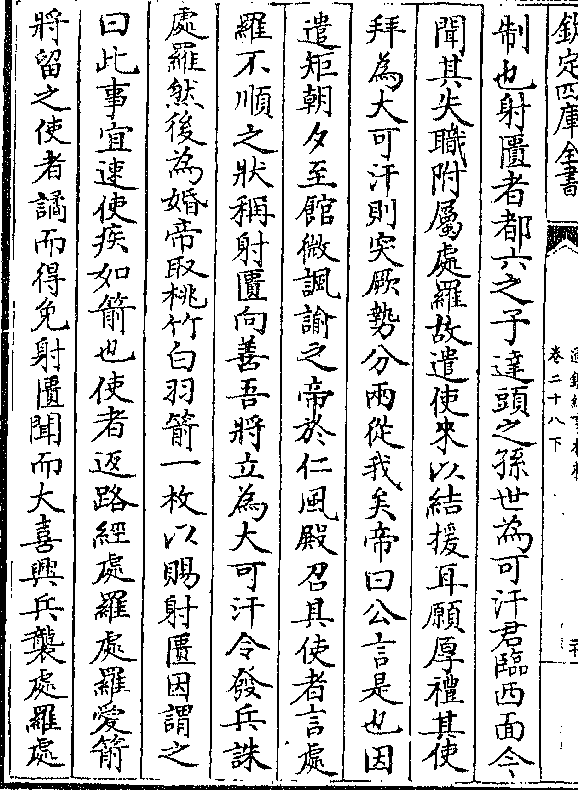 欽定四庫全書
卷二十八下
制也射匱者都六之子達頭之孫世為可汗君臨西面今
聞其失職附屬處羅故遣使来以結援耳願厚禮其使
拜為大可汗則突厥勢分兩從我矣帝曰公言是也因
遣矩朝夕至館微諷諭之帝於仁風殿召其使者言處
羅不順之狀稱射匱向善吾將立為大可汗令發兵誅
處羅然後為婚帝取桃竹白羽箭一枚以賜射匱因謂之
曰此事宜速使疾如箭也使者返路經處羅處羅愛箭
將留之使者譎而得免射匱聞而大喜興兵襲處羅處